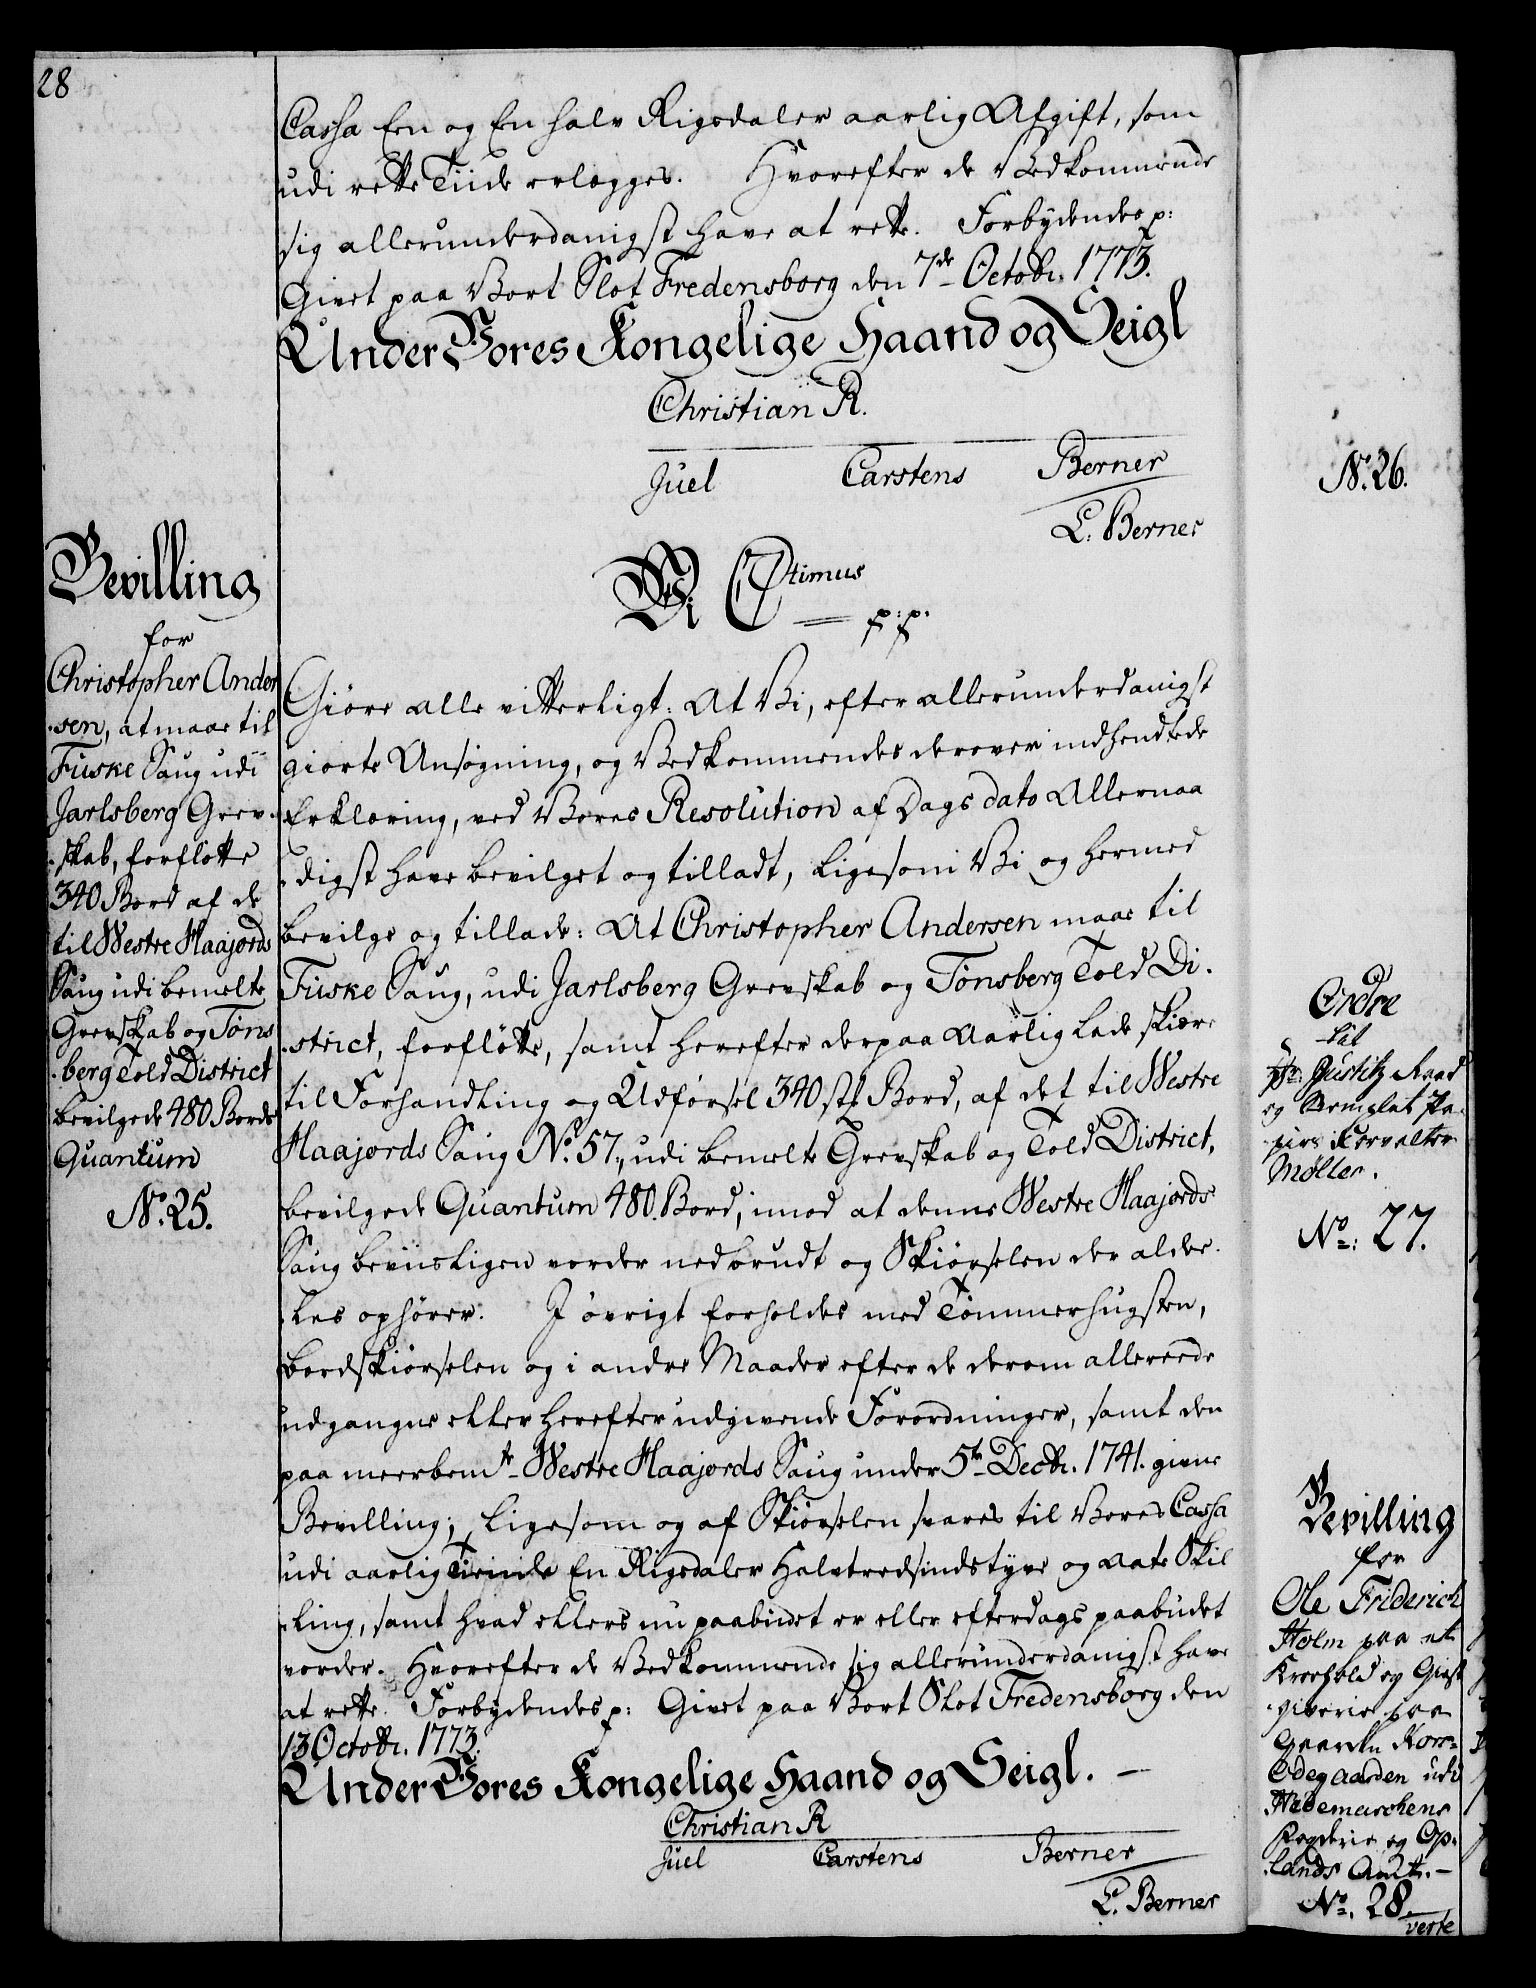 28
Cassa Een og En halv Rigsdaler aarlig Afgift, som
udi rette Tiide erlægges. Hvorefter de Vedkommende
sig allerunderdanigst have at rette. Forbydendes p:
Givet paa Vort Slot Fredensborg den 7de Octobr. 1773.
Under Vores Kongelige Haand og Seigl
Christian R.
Juel Carstens Berner
L. Berner
Bevilling
for
Christopher Ander
-sen, at maae til
Fuske Saug udi
Jarlsberg Grev-
-skab, forflötte
340 Bord af de
til Westre Haajords
Saug udi bemelte
Grevskab og Töns
-berg Told District
bevilgede 480 Bords
Quantum
No. 25.
Vi C 7timus
p. p.
Giöre alle vitterligt: At Vi, efter allerunderdanigst
giorte Ansögning, og Vedkommendes derover indhendtede
Erklæring, ved Vores Resolution af Dags dato Allernaa
-digst have bevilget og tilladt, ligesom Vi og hermed
bevilge og tillade: At Christopher Andersen maae til
Fuske Saug, udi Jarlsberg Grevskab og Tönsberg Told Di-
-strict, forflötte, samt herefter derpaa aarlig lade skiære
til Forhandling og Udförsel 340 stk Bord, af det til Westre
Haajords Saug No. 57, udi bemelte Grevskab og Told District,
bevilgede Quantum 480. Bord, imod at denne Westre Haajords
Saug beviisligen vorder nedbrudt og Skiörselen der alde-
les ophörer. I övrigt forholdes med Tömmerhugsten,
bordskiörselen og i andre Maader efter de derom allereede
udgangne eller herefter udgivende Forordninger, samt den
paa meerbemte Westre Haajords Saug under 5te Decbr. 1741. givne
Bevilling; Ligesom og af Skiörselen svares til Vores Cassa
udi aarlig Tiende En Rigsdaler Halvtredsindstyve og aate Skil
-ling, samt hvad ellers nu paabudet er eller efterdags paabudet
vorder. Hvorefter de Vedkommende sig allerunderdanigst have
at rette. Forbydendes p: Givet paa Vort Slot Fredensborg den
13 Octobr. 1773.
Under Vores Kongelige Haand og Seigl. -
Christian R
Juel Carstens Berner
L. Berner
No. 26.
Ordre
til
Justitz Raad
og Stemplet Pa-
-piirs Forvalter
Möller.
No. 27.
Bevilling
for
Ole Friderich
Holm paa et
Kroehold og Giest
-giverie paa
Gaarden Kors-
Ödegaarden udi
Hedemarkens
Fogderie og Op-
-lands Amt. -
No. 28.
verte